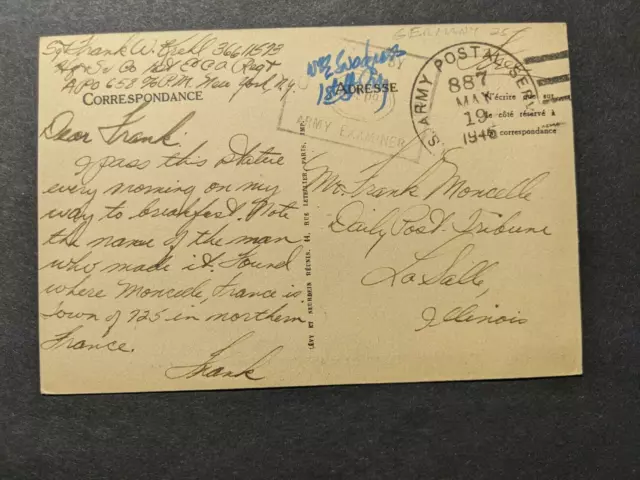 Sgt Frank W. Krehl 36611593
Hq & Sv Co 1st E C A Regt
A.P.O 658 % P.M. New York, N.Y.
CORRESPONDANCE
Dear Frank.
I pass this statue
every morning on my
way to breakfast. Note
the name of the man
who made it. Found
where Moncelle, France is
town of 725 in northern
France.
Frank
LÉVY ET NEURDEIN RÉUNIS, 44, RUE LETELLIER, PARIS, IMP.
GERMANY 25
BY
ARMY EXAMINER
ADRESSE
U.S. ARMY POSTAL SERV
887
MAY
19
1945
N'écrire que sur
le côté réservé à
la correspondance
Mr. Frank Moncelle
Daily Post Tribune
La Salle,
Illinois